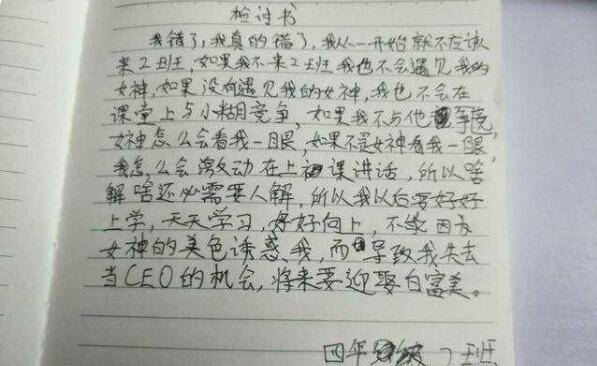 检讨书
我错了,我真的错了,我从一开始就不应该
来2班,如果我不来2班我也不会遇见我的
女神,如果没有遇见我的女神,我也不会在
课堂上与小糊竞争,如果我不与他争竞
女神怎么会看我一眼,如果不是女神看我一眼,
我怎么会激动在上课讲话,所以啥
解啥还必需要人解,所以我以后要好好
上学,天天学习,好好向上,不能因为
女神的美色诱惑我,而导致我失去
当CEO的机会,将来要迎娶白富美。
四年级2班